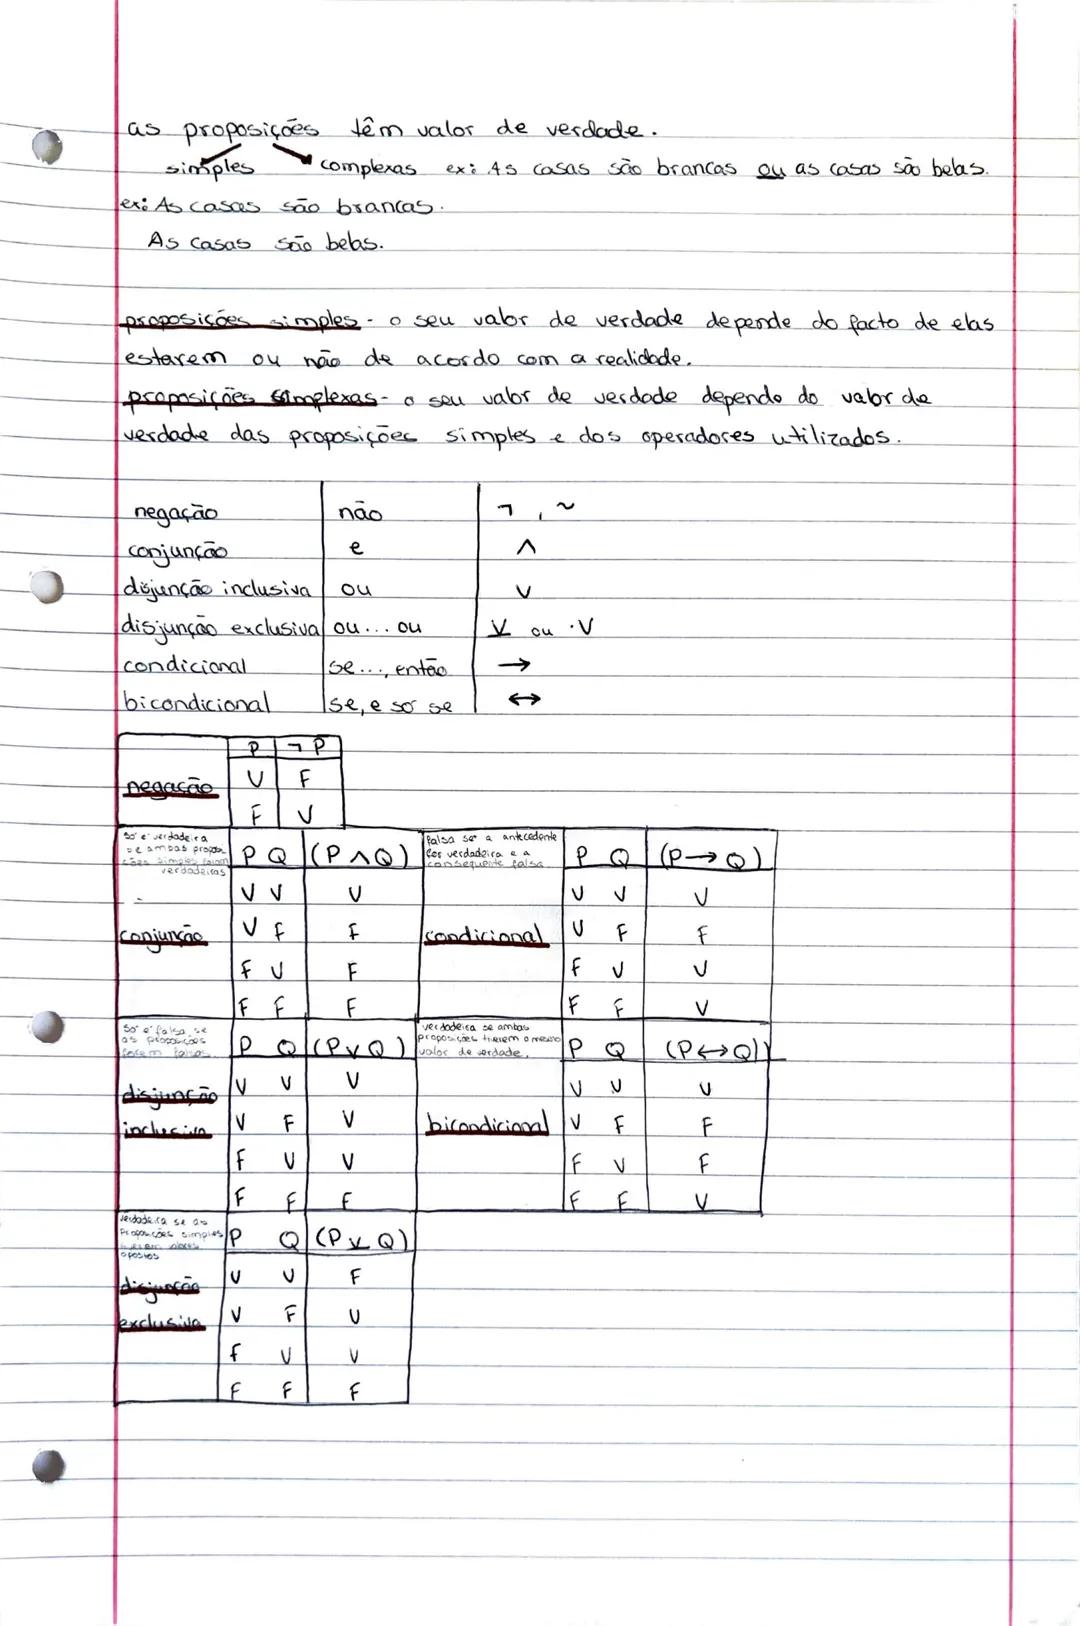 as proposições têm valor de verdade.
simples complexas ex: As casas são brancas ou as casas são belas.
ex: As casas são brancas.
As casas são belas.
proposições simples - o seu valor de verdade depende do facto de elas
estarem ou não de acordo com a realidade.
proposições complexas - o seu valor de verdade depende do valor de
verdade das proposições simples e dos operadores utilizados.
negação não ¬ , ~
conjunção e ∧
disjunção inclusiva ou ∨
disjunção exclusiva ou... ou ⊻ ou ·V
condicional se..., então →
bicondicional se, e só se ↔
P ¬P
negação V F
F V
só é verdadeira
se ambas proposi-
ções simples forem
verdadeiras
P Q (P ∧ Q)
V V V
conjunção V F F
F V F
F F F
falsa se a antecedente
for verdadeira e a
consequente falsa
P Q (P → Q)
V V V
condicional V F F
F V V
F F V
só é falsa se
as proposições
forem falsas
P Q (P ∨ Q)
disjunção V V V
inclusiva V F V
F V V
F F F
verdadeira se ambas
proposições tiverem o mesmo
valor de verdade.
P Q (P ↔ Q)
V V V
bicondicional V F F
F V F
F F V
verdadeira se as
proposições simples
tiverem valores
opostos
P Q (P ⊻ Q)
disjunção V V F
exclusiva V F V
F V V
F F F